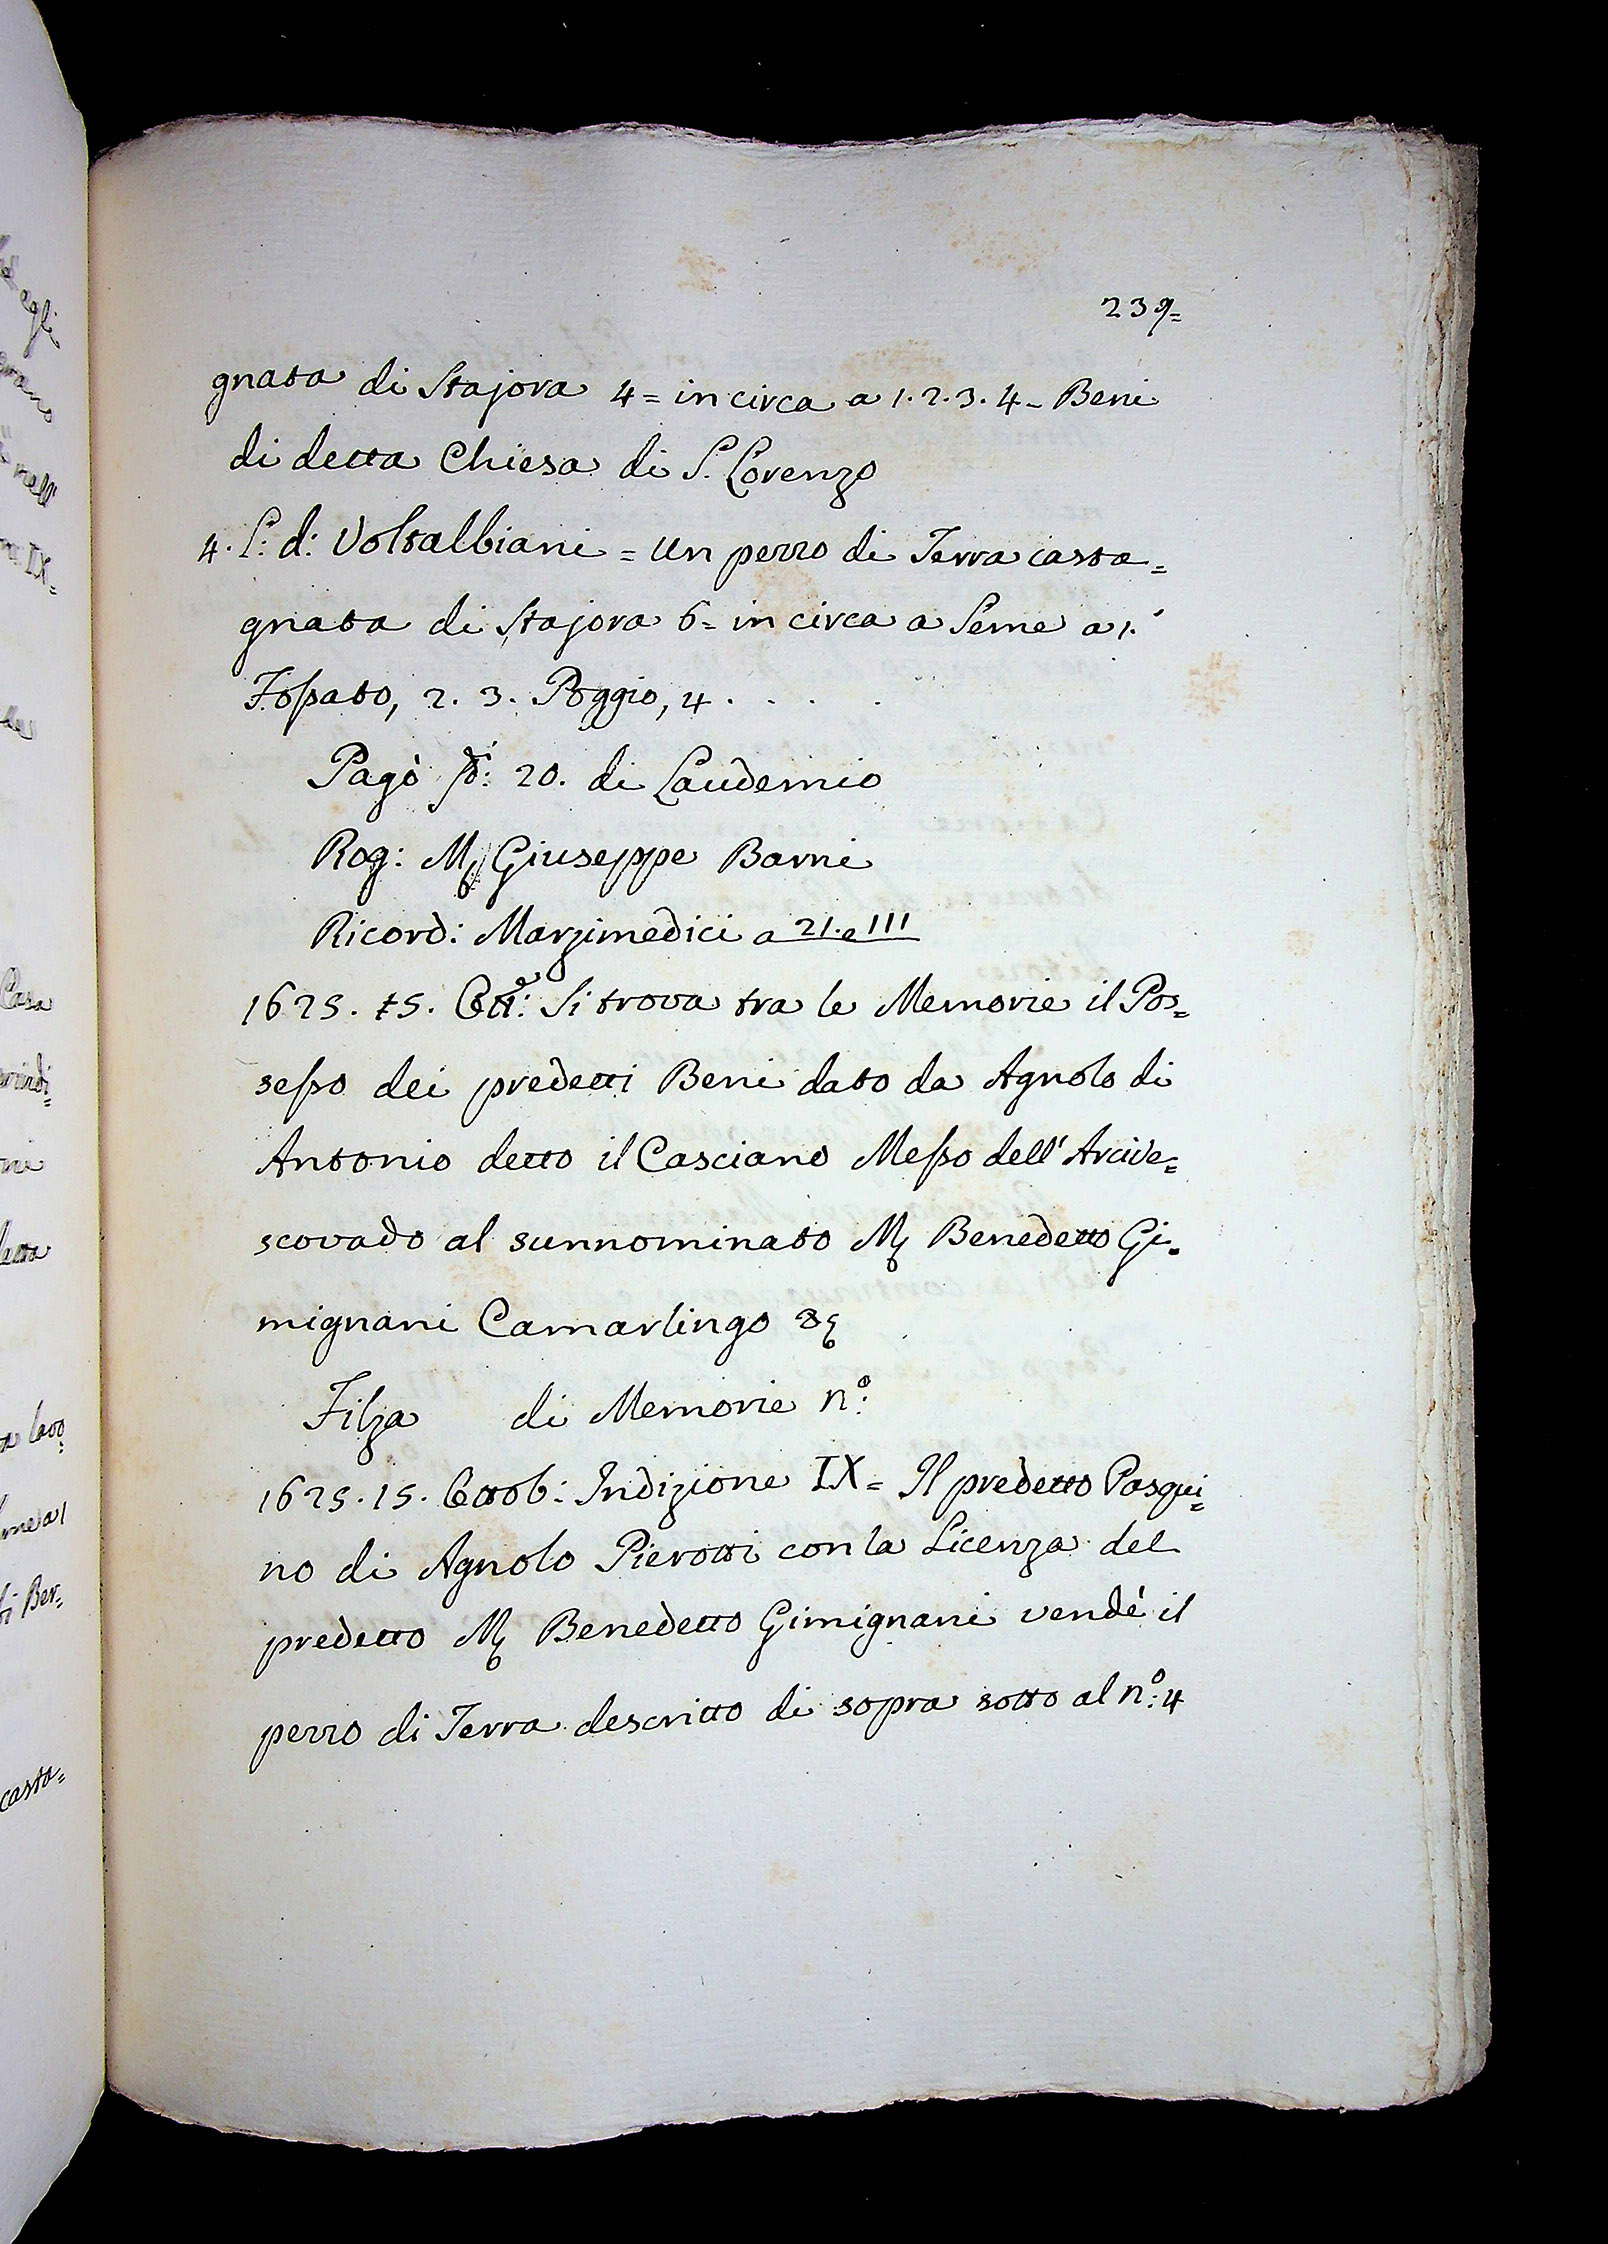 239=
gnata di Stajora 4= in circa a 1.2.3.4- Beni
di detta Chiesa di S. Lorenzo
4. L: d: Voltalbiani = Un pezzo di Terra casta=
gnata di Stajora 6= in circa a Seme a 1.
Fossato, 2. 3. Poggio, 4 . . . .
Pagò 20. di Laudemio
Rog: M Giuseppe Barni
Ricord: Marzimedici a 21. e 111
1625. 15. Ottē: Si trova tra le Memorie il Pos=
sesso dei predetti Beni dato da Agnolo di
Antonio detto il Casciano Messo dell' Arcive=
scovado al sunnominato M Benedetto Gi=
mignani Camarlingo &c
Filza di Memorie n.º
1625. 15. Ottob: Indizione IX= Il predetto Pasqui=
no di Agnolo Pierotti con la Licenza del
predetto M Benedetto Gimignani vendé il
pezzo di Terra descritto di sopra sotto al n.º 4